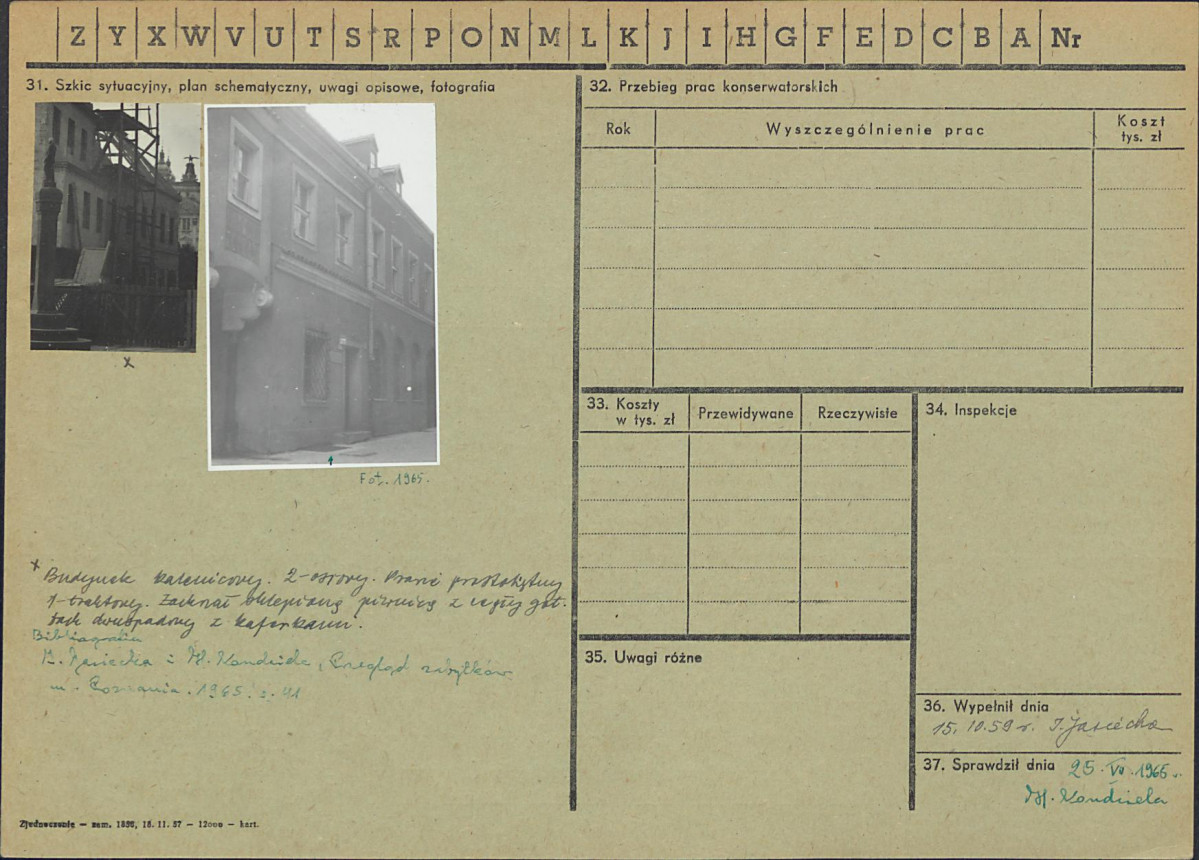 Z Y X W V U T S R P O N M L K J I H G F E D C B A Nr
31. Szkic sytuacyjny, plan schematyczny, uwagi opisowe, fotografia
x
Fot. 1965.
x Budynek kalenicowy. 2-osiowy. Prawie prostokątny
1-traktowy. Zachował sklepioną piwnicę z cegły got.
Dach dwuspadowy z kaferkami.
Bibliografia
I. Jasiecka i M. Kondziela, Przegląd zabytków
m. Poznania. 1965. s. 41
Zjednoczenie – zam. 1856, 18. 11. 57 – 12000 – kart.
32. Przebieg prac konserwatorskich
Rok
Wyszczególnienie prac
Koszt
tys. zł
33. Koszty
w tys. zł
Przewidywane
Rzeczywiste
34. Inspekcje
35. Uwagi różne
36. Wypełnił dnia
15. 10. 59 r. I. Jasiecka
37. Sprawdził dnia 25. VI. 1965 r.
H. Kondziela